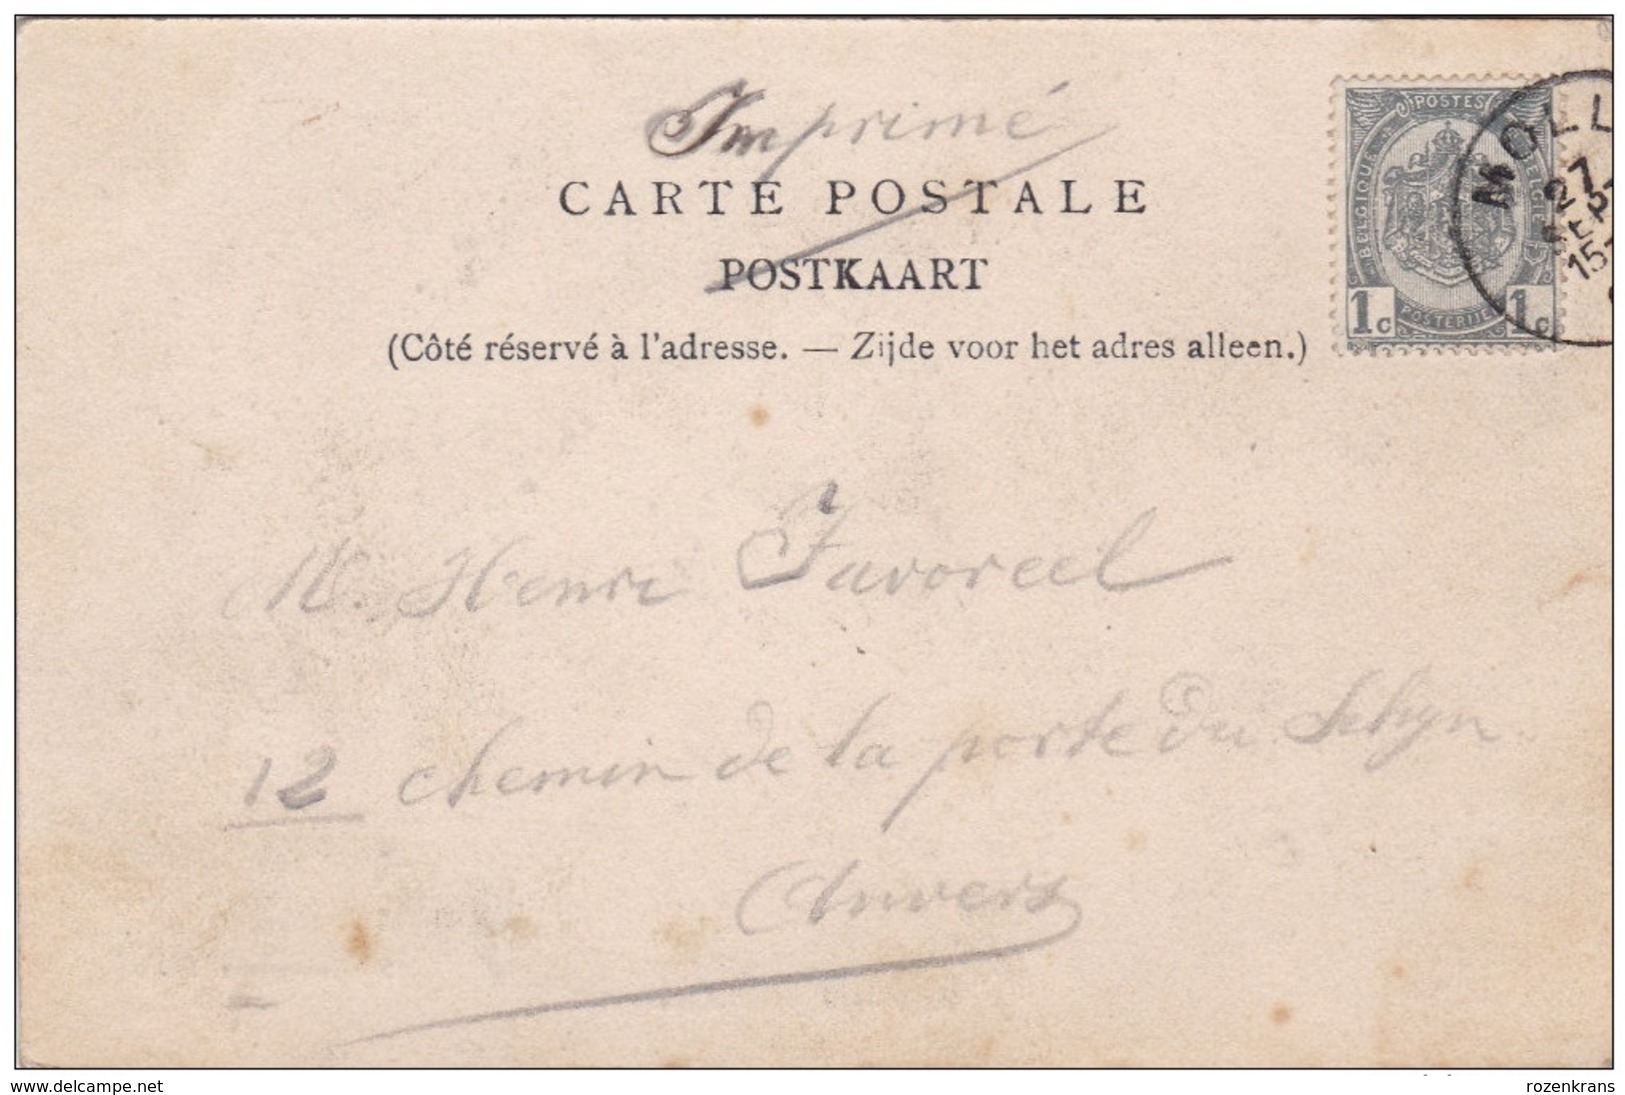 Imprimé
CARTE POSTALE
POSTKAART
(Côté réservé à l'adresse. — Zijde voor het adres alleen.)
POSTES
BELGIQUE
BELGIË
POSTERIJEN
1c 1c
MOLL
27
SEPT
15
M. Henri Favoreel
12 chemin de la porte du Schyn
Anvers
www.delcampe.net
rozenkrans